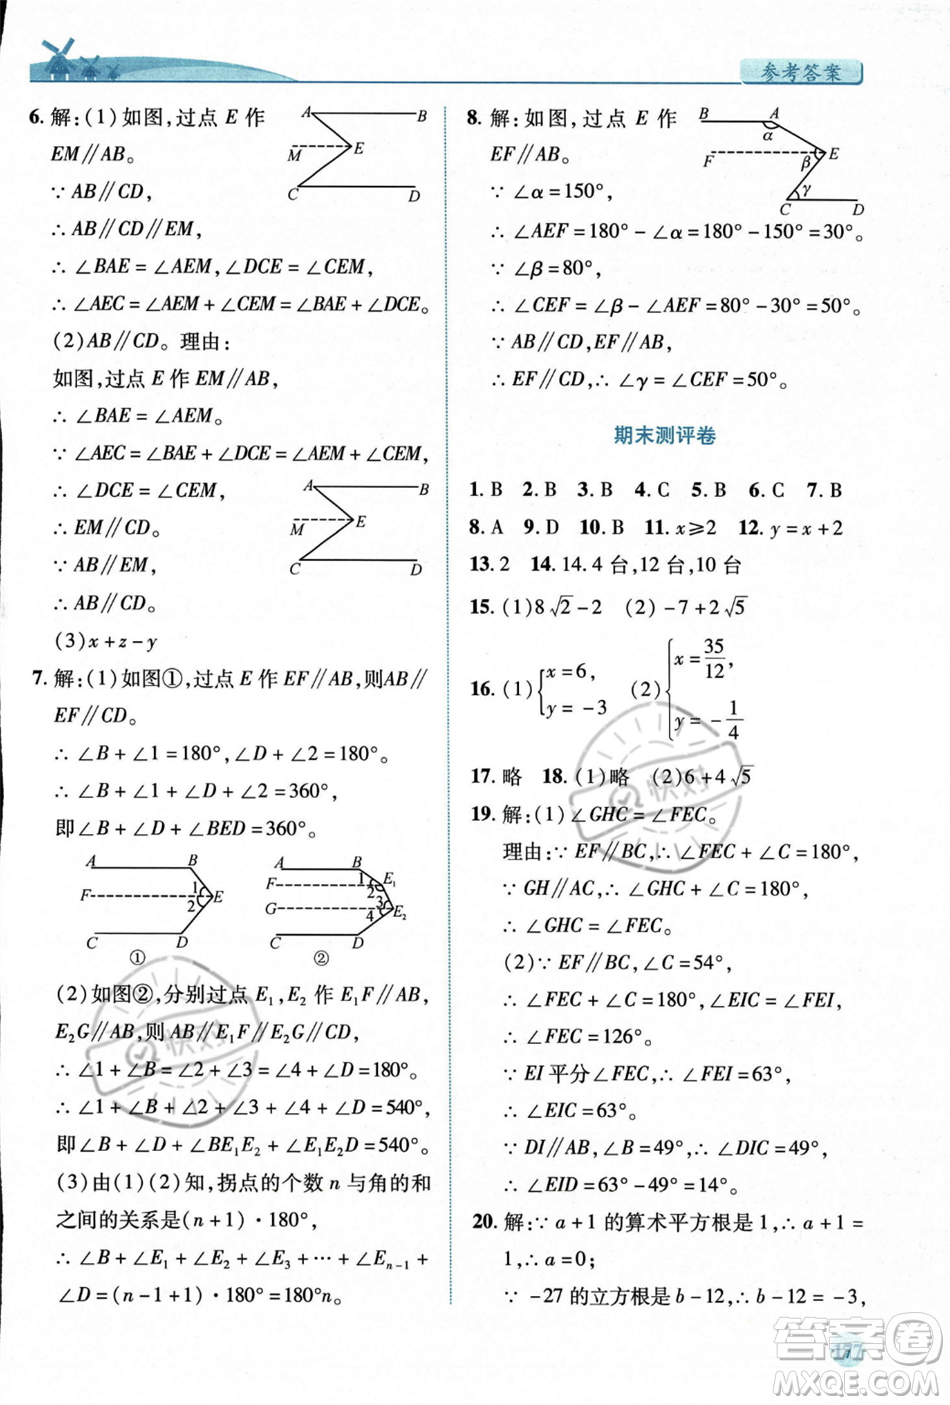 参考答案
6. 解:(1)如图,过点 E 作
EM∥AB。
∵ AB∥CD,
∴ AB∥CD∥EM,
∴ ∠BAE = ∠AEM,∠DCE = ∠CEM,
∴ ∠AEC = ∠AEM + ∠CEM = ∠BAE + ∠DCE。
A B
M E
C D
(2)AB∥CD。理由:
如图,过点 E 作 EM∥AB,
∴ ∠BAE = ∠AEM。
∵ ∠AEC = ∠AEM + ∠CEM = ∠BAE + ∠DCE,
∴ ∠DCE = ∠CEM,
∴ EM∥CD。
∵ EM∥AB,
∴ AB∥CD。
A B
M E
C D
(3)x + z - y
7. 解:(1)如图①,过点 E 作 EF∥AB,则AB∥
EF∥CD。
∴ ∠B + ∠1 = 180°,∠D + ∠2 = 180°。
∴ ∠B + ∠1 + ∠2 + ∠D = 360°,
即∠B + ∠D + ∠BED = 360°。
A B
F 1 E
2
C D
①
A B
F 1 E₁
2
G 3 E₂
4
C D
②
(2)如图②,分别过点 E₁,E₂ 作 E₁F∥AB,
E₂G∥AB,则 AB∥E₁F∥E₂G∥CD,
∴ ∠1 + ∠B = ∠2 + ∠3 = ∠4 + ∠D = 180°,
∴ ∠1 + ∠B + ∠2 + ∠3 + ∠4 + ∠D = 540°,
即∠B + ∠D + ∠BE₁E₂ + ∠E₁E₂D = 540°。
(3)由(1)(2)知,拐点的个数 n 与角的和
之间的关系是(n + 1)·180°,
∴ ∠B + ∠E₁ + ∠E₂ + ∠E₃ + ⋯ + ∠Eₙ₋₁ +
∠D = (n - 1 + 1)·180° = 180°n。
8. 解:如图,过点 E 作
EF∥AB。
∵ ∠α = 150°,
∴ ∠AEF = 180° - ∠α = 180° - 150° = 30°。
∵ ∠β = 80°,
∴ ∠CEF = ∠β - ∠AEF = 80° - 30° = 50°。
∵ AB∥CD,EF∥AB,
∴ EF∥CD,∴ ∠γ = ∠CEF = 50°。
B A
α
F β E
γ
C D
期末测评卷
1. B 2. B 3. B 4. C 5. B 6. C 7. B
8. A 9. D 10. B 11. x⩾2 12. y = x + 2
13. 2 14. 14.4 台,12 台,10 台
15. (1)8√2 - 2 (2) - 7 + 2√5
16. (1){x = 6, y = -3 (2){x = 35/12, y = -1/4
17. 略 18. (1)略 (2)6 + 4√5
19. 解:(1)∠GHC = ∠FEC。
理由:∵ EF∥BC,∴ ∠FEC + ∠C = 180°,
∵ GH∥AC,∴ ∠GHC + ∠C = 180°,
∴ ∠GHC = ∠FEC。
(2)∵ EF∥BC,∠C = 54°,
∴ ∠FEC + ∠C = 180°,∠EIC = ∠FEI,
∴ ∠FEC = 126°。
∵ EI 平分∠FEC,∴ ∠FEI = 63°,
∴ ∠EIC = 63°。
∵ DI∥AB,∠B = 49°,∴ ∠DIC = 49°,
∴ ∠EID = 63° - 49° = 14°。
20. 解:∵ a + 1 的算术平方根是 1,∴ a + 1 =
1,∴ a = 0;
∵ -27 的立方根是 b - 12,∴ b - 12 = -3,
快对
快对
答案圈
MXQE.COM